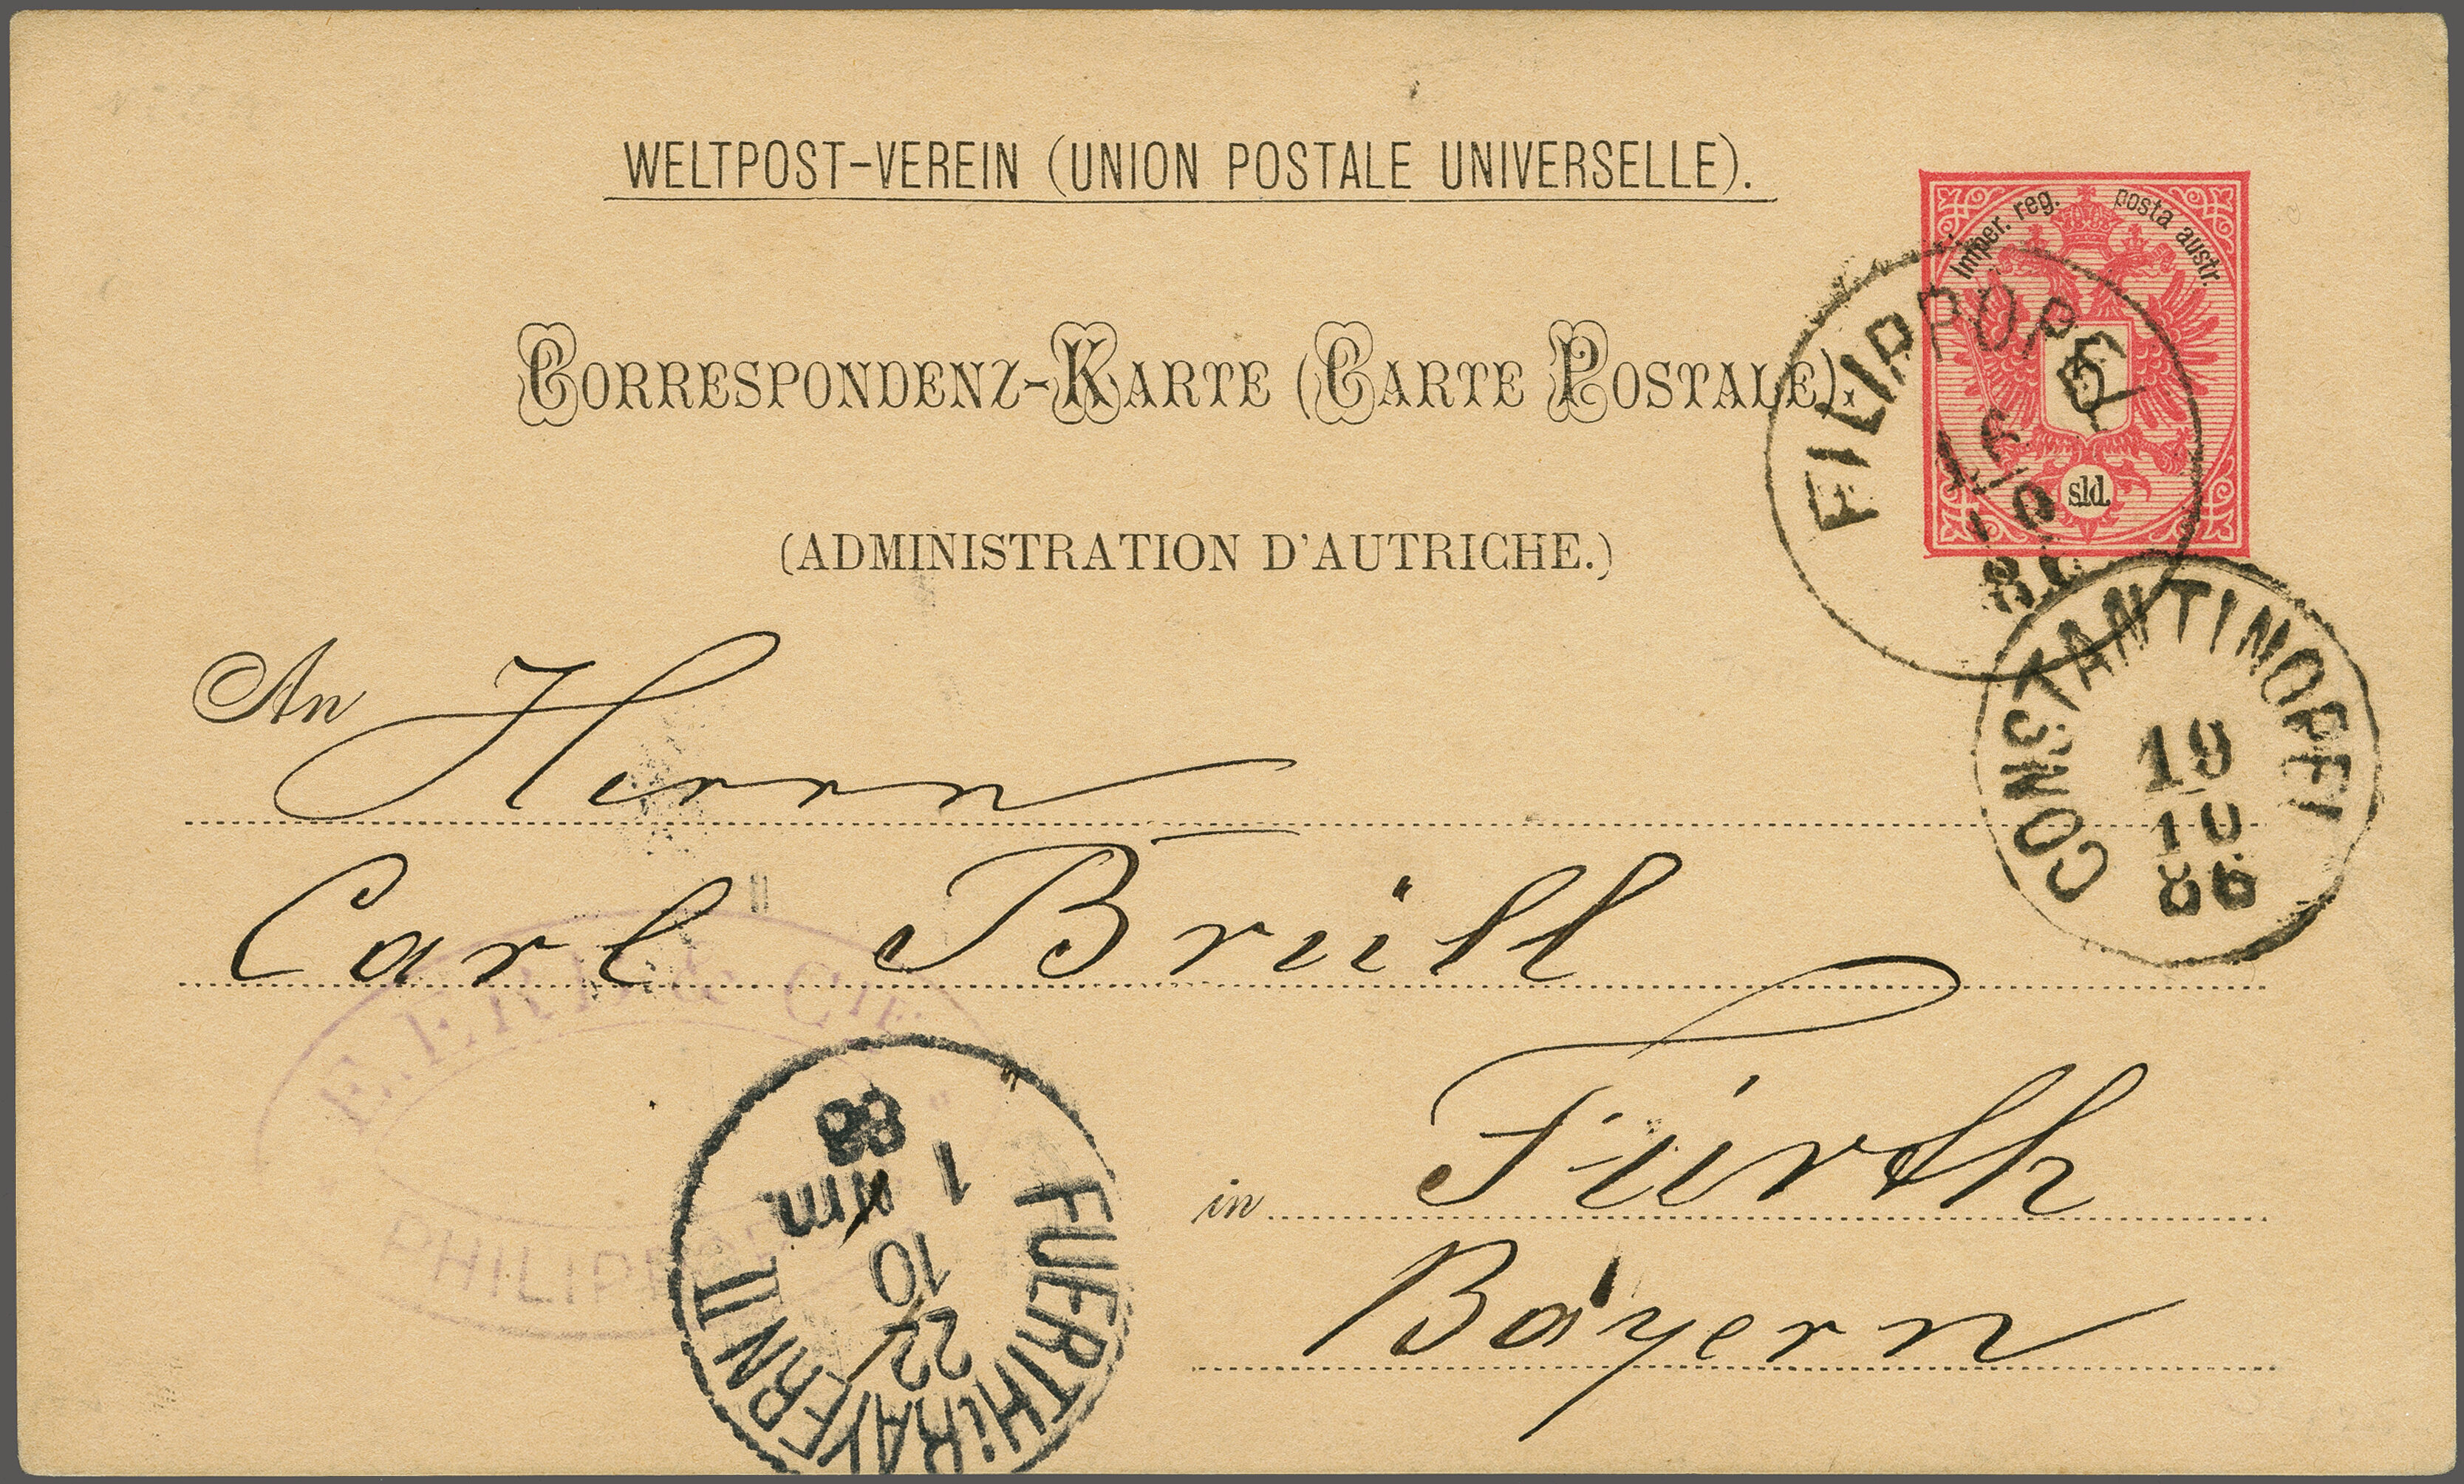 WELTPOST-VEREIN (UNION POSTALE UNIVERSELLE).
Imper. reg. posta austr.
5
sld.
CORRESPONDENZ-KARTE (CARTE POSTALE).
FILIPPOPEL
10
(ADMINISTRATION D'AUTRICHE.)
CONSTANTINOPEL
19
10
86
An Herrn
Carl Brüll
E. & CIE
in Fürth
Bayern
FUERTH i. BAYERN II
22
10
1 Nm